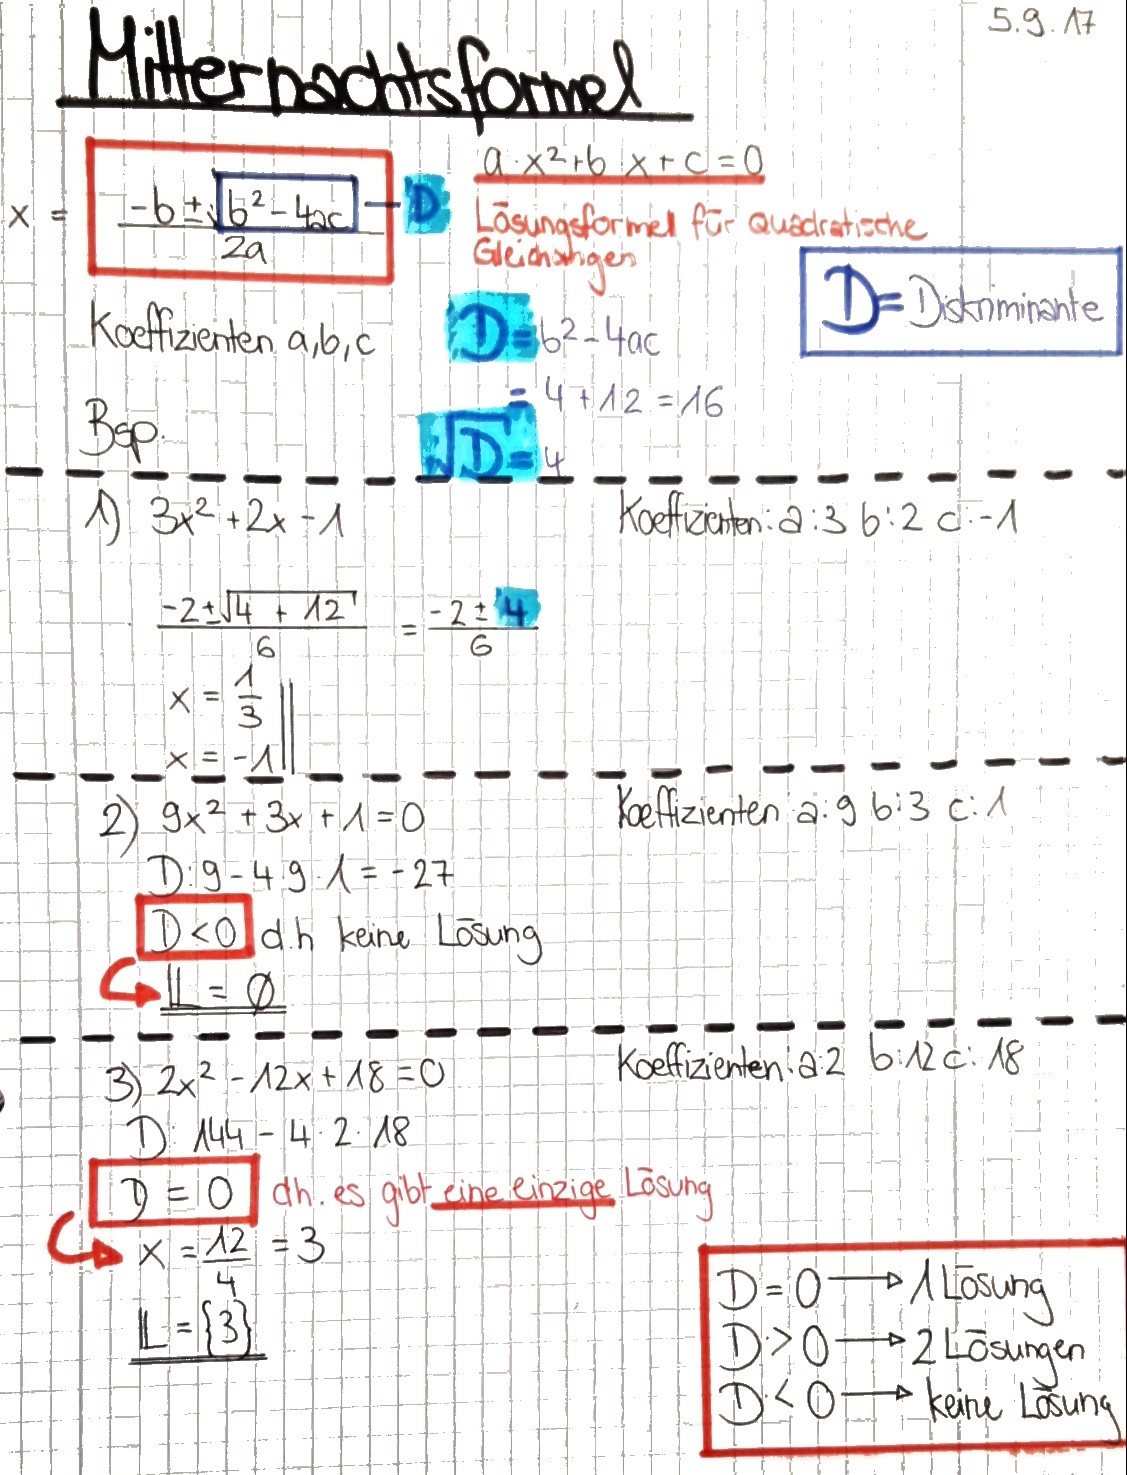 5.9.17
Mitternachtsformel
x = (-b ± √(b² - 4ac)) / 2a — D
a · x² + b · x + c = 0
Lösungsformel für Quadratische
Gleichungen
D = Diskriminante
Koeffizienten a, b, c
D = b² - 4ac
= 4 + 12 = 16
√D = 4
Bsp.
1) 3x² + 2x - 1 Koeffizienten: a: 3 b: 2 c: -1
(-2 ± √(4 + 12)) / 6 = (-2 ± 4) / 6
x = 1/3
x = -1
2) 9x² + 3x + 1 = 0 Koeffizienten a: 9 b: 3 c: 1
D: 9 - 4 · 9 · 1 = -27
D < 0 d.h keine Lösung
L = ∅
3) 2x² - 12x + 18 = 0 Koeffizienten: a: 2 b: 12 c: 18
D: 144 - 4 · 2 · 18
D = 0 dh. es gibt eine einzige Lösung
x = 12/4 = 3
L = {3}
D = 0 → 1 Lösung
D > 0 → 2 Lösungen
D < 0 → keine Lösung